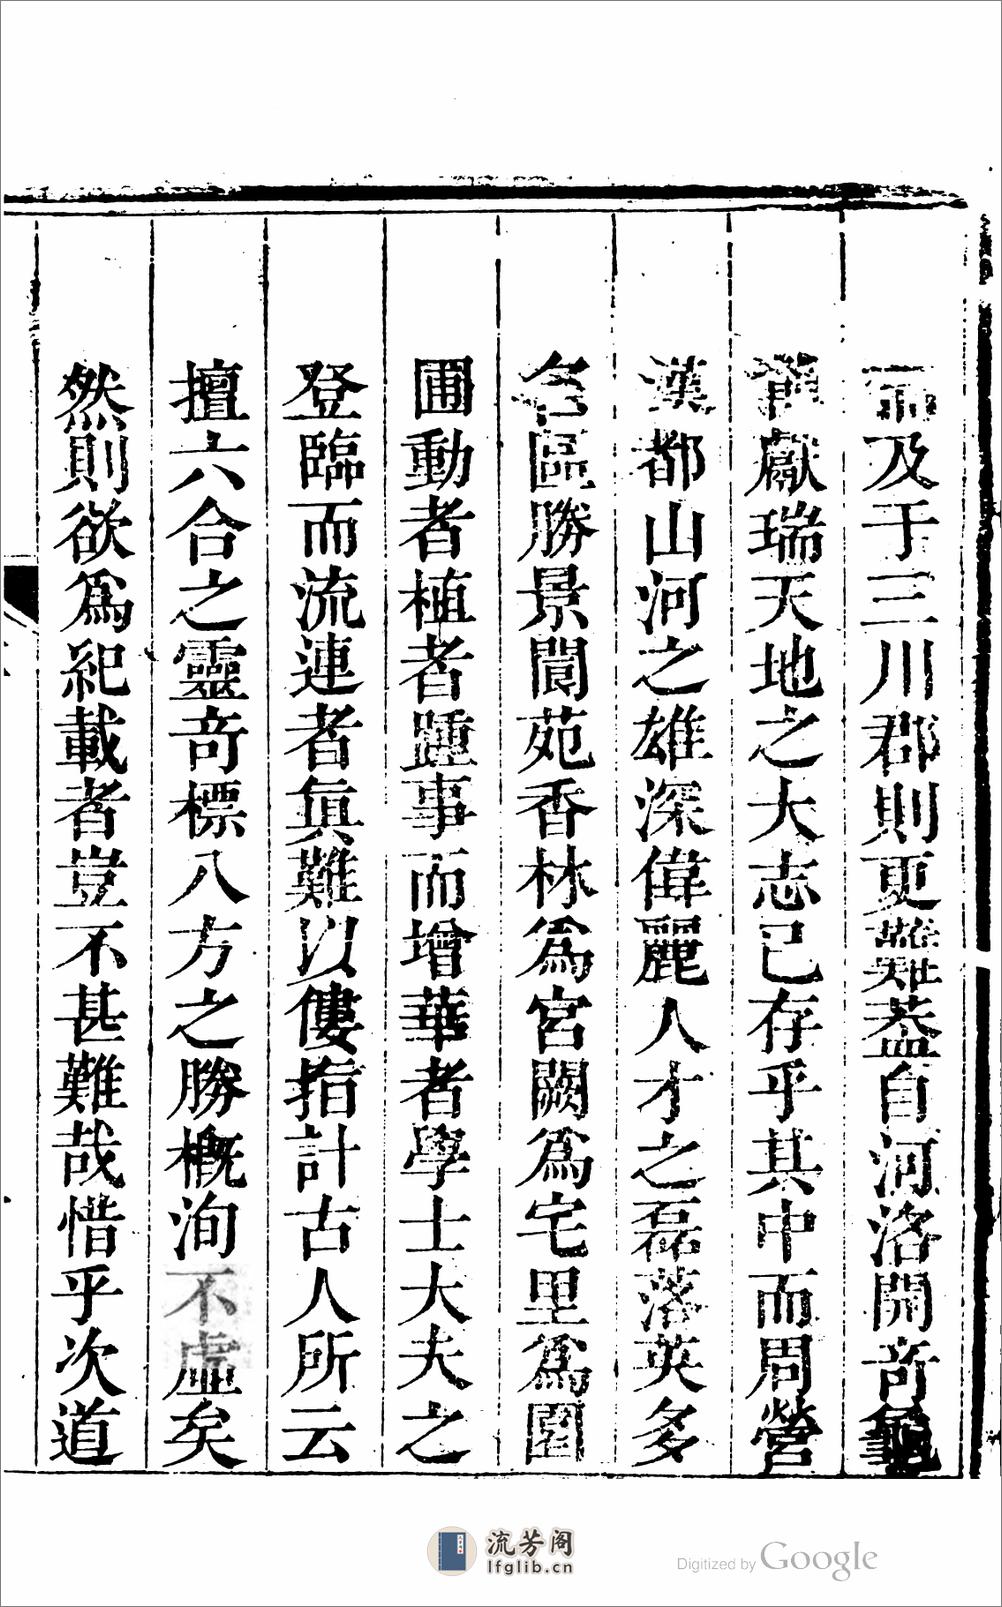 而及于三川郡則更難葢自河洛開奇龜
獻瑞天地之大志已存乎其中而周營
漢都山河之雄深偉麗人才之磊落英多
名區勝景閬苑香林為宮闕為宅里為園
圃動者植者踵事而增華者學士大夫之
登臨而流連者眞難以僂指計古人所云
擅六合之靈奇標八方之勝槪洵不虛矣
然則欲為紀載者豈不甚難哉惜乎次道
流芳阁
lfglib.cn
Digitized by Google